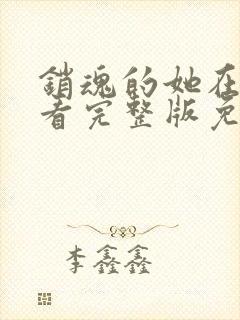 銷魂的她在
看完整版免
李鑫鑫